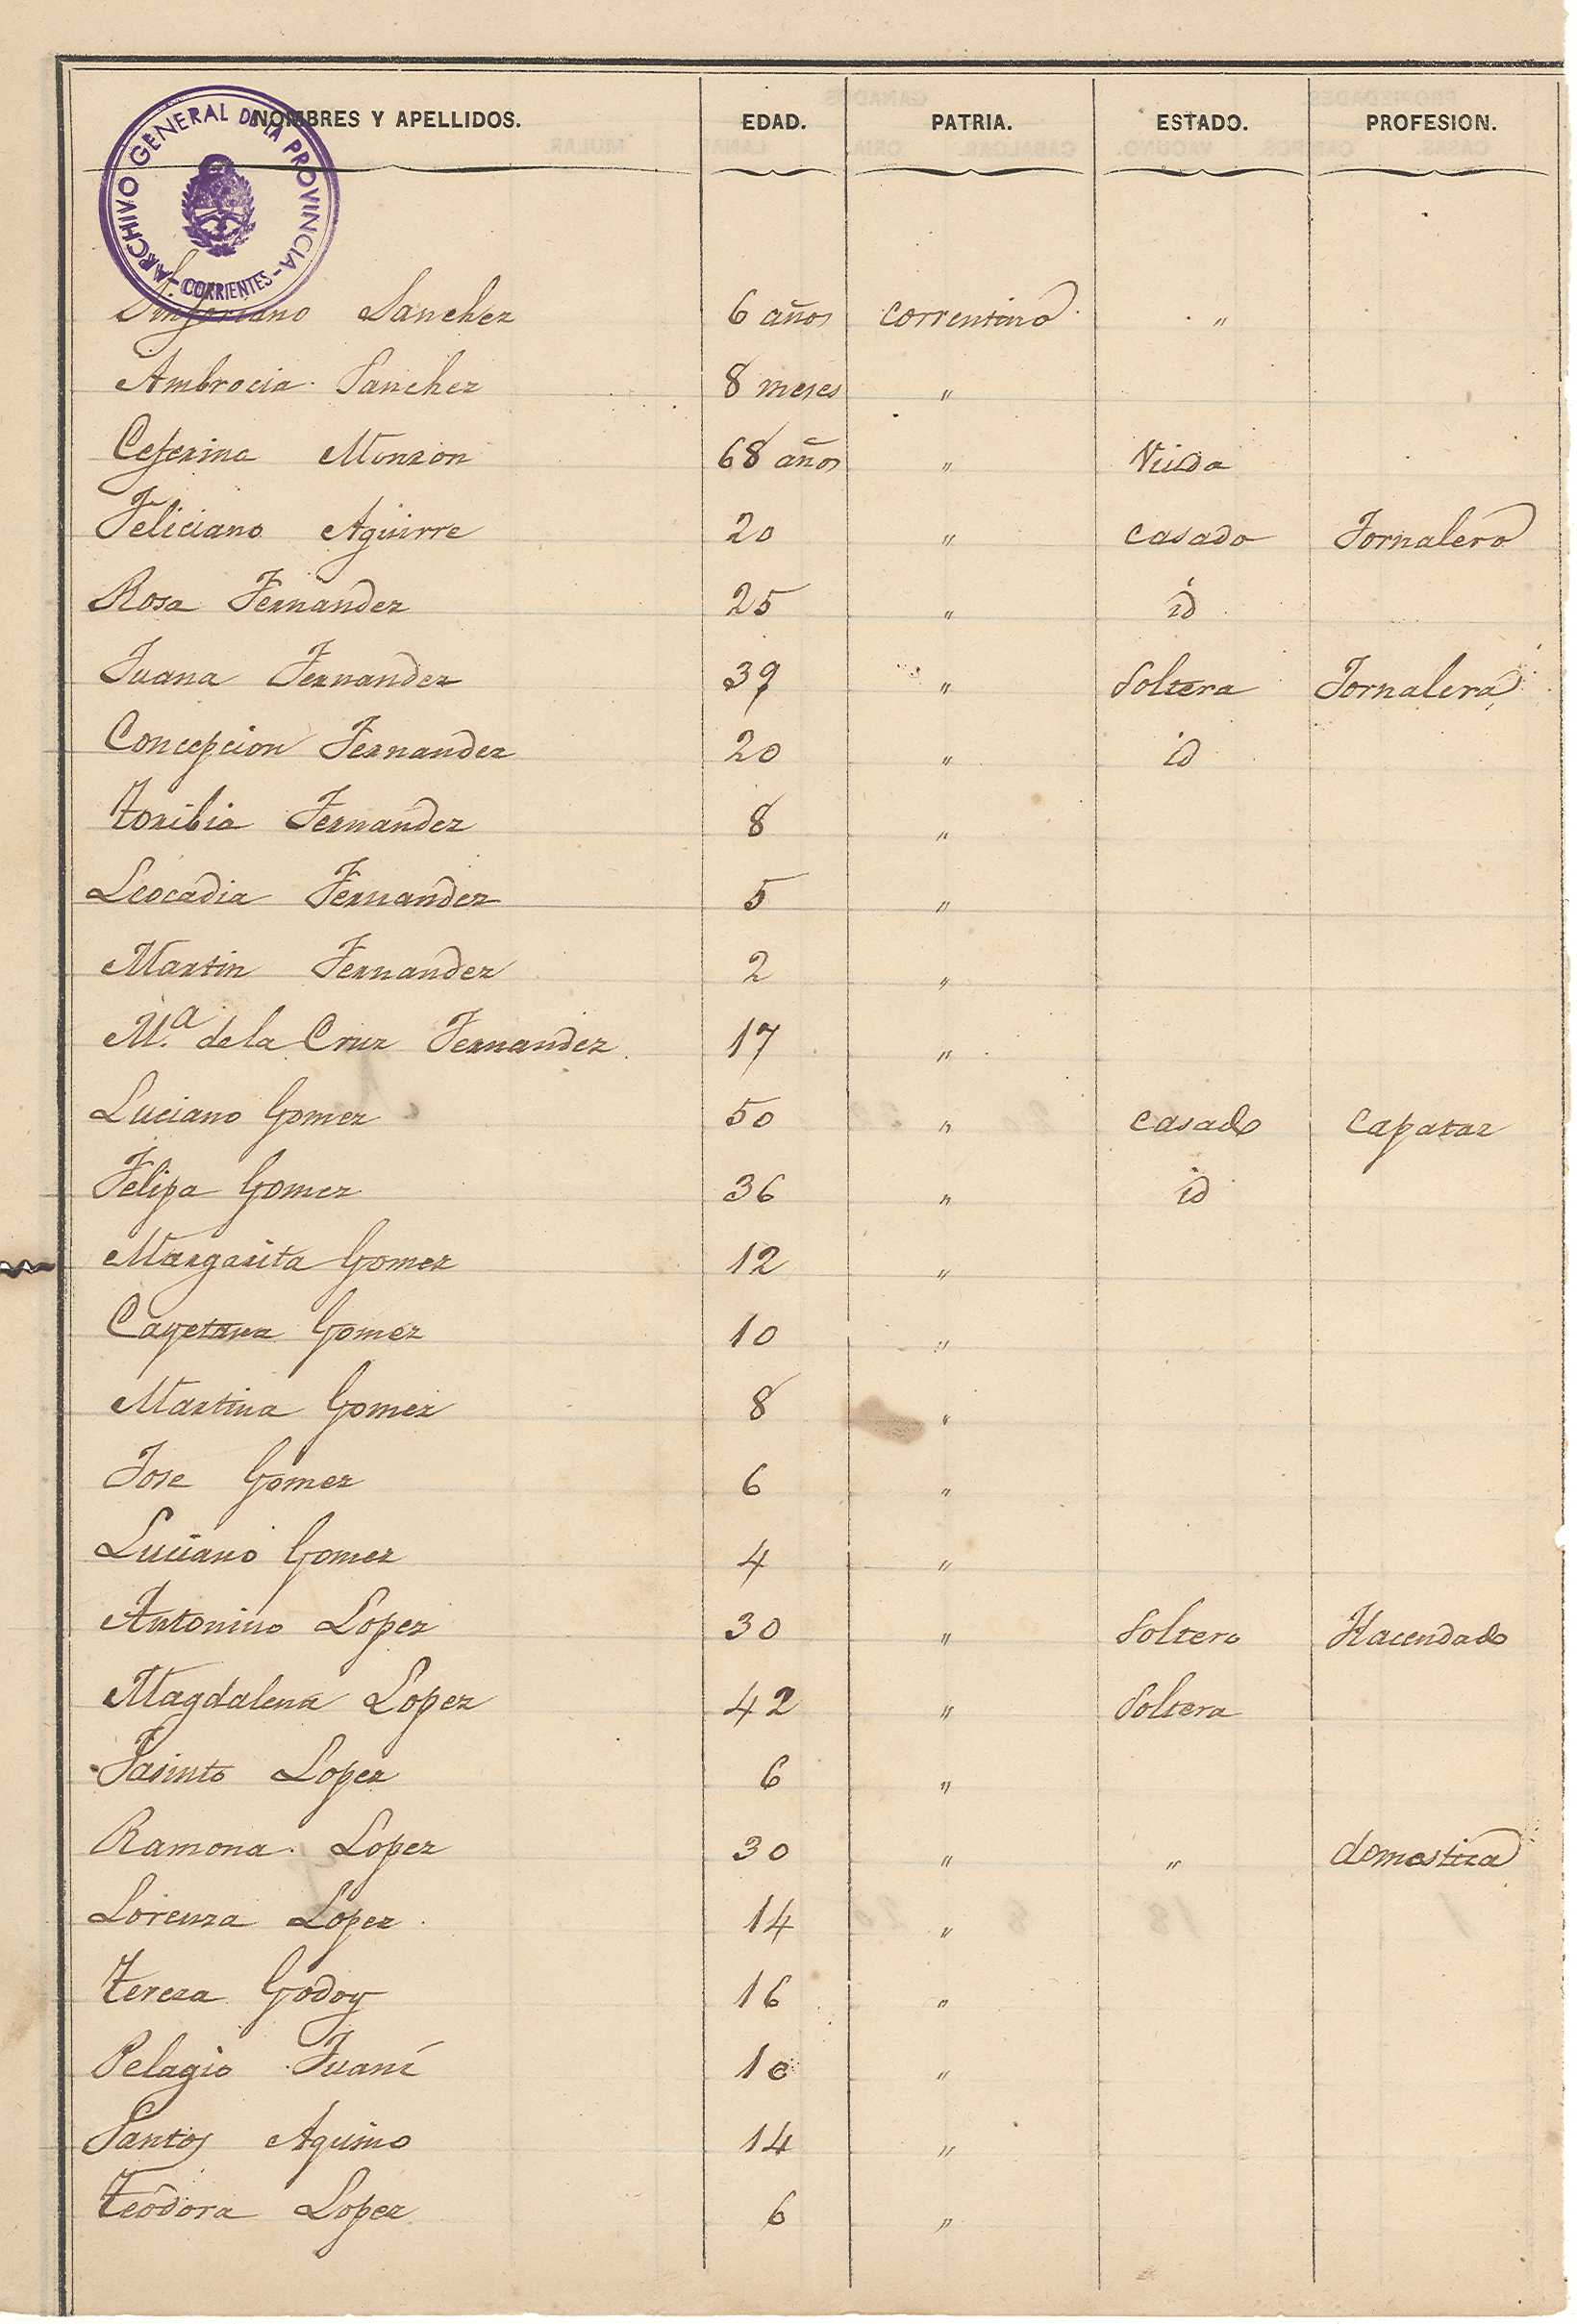 NOMBRES Y APELLIDOS. EDAD. PATRIA. ESTADO. PROFESION.
ARCHIVO GENERAL DE LA PROVINCIA - CORRIENTES -
Sinforiano Sanchez 6 años correntino "
Ambrocia Sanchez 8 meses "
Ceferina Monzon 68 años " Viuda
Feliciano Aguirre 20 " casado Jornalero
Rosa Fernandez 25 " id
Juana Fernandez 39 " Soltera Jornalera
Concepcion Fernandez 20 " id
Toribia Fernandez 8 "
Leocadia Fernandez 5 "
Martin Fernandez 2 "
M.ª de la Cruz Fernandez 17 "
Luciano Gomez 50 " casado capataz
Felipa Gomez 36 " id
Margarita Gomez 12 "
Cayetana Gomez 10 "
Martina Gomez 8 "
Jose Gomez 6 "
Luciano Gomez 4 "
Antonino Lopez 30 " Soltero Hacendado
Magdalena Lopez 42 " Soltera
Jasinto Lopez 6 "
Ramona Lopez 30 " " domestica
Lorenza Lopez 14 "
Tereza Godoy 16 "
Pelagio Juaní 10 "
Santos Aquino 14 "
Teodora Lopez 6 "